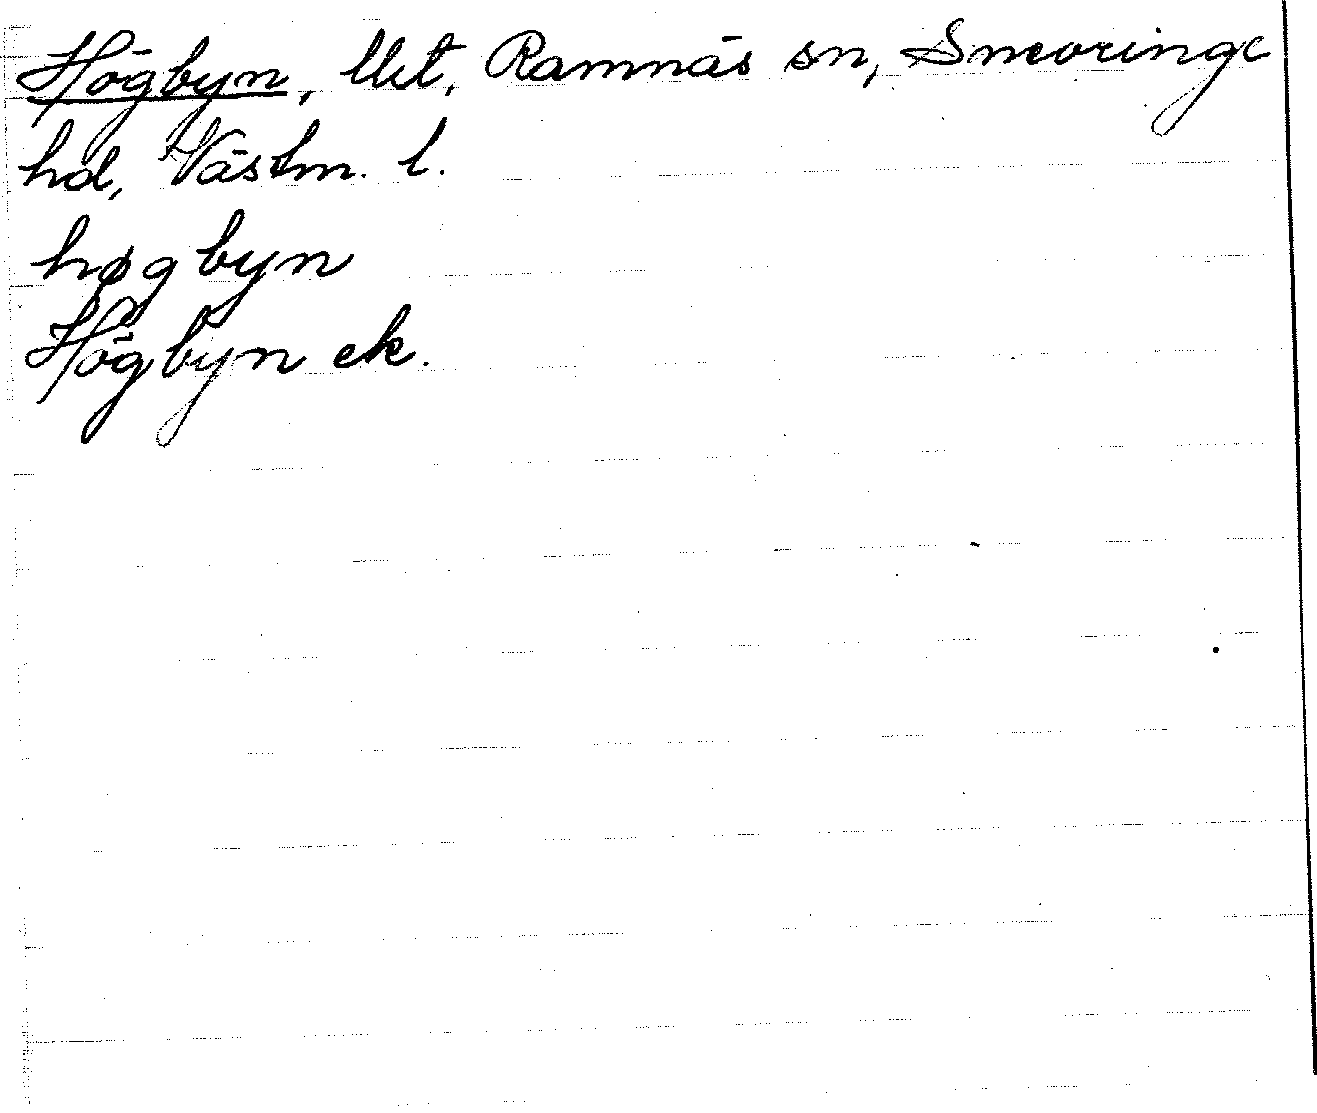 Högbyn, Ramnäs sn, Snevringe
hd, Västm. l.
høgbyn
Högbyn ek.